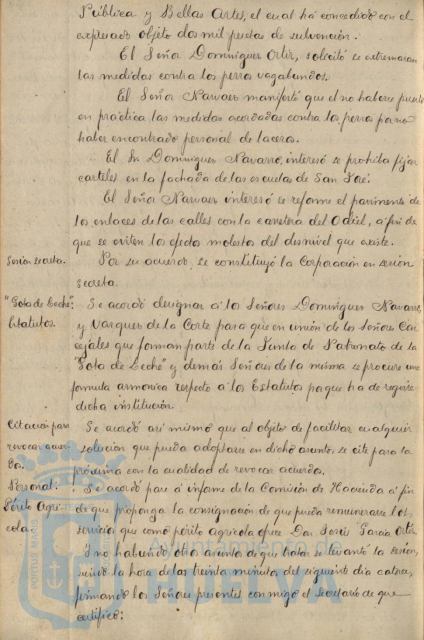 Pública y Bellas Artes, el cual há concedido con el
expresado objeto dos mil pesetas de subvención.
El Señor Dominguez Ortiz, solicitó se extremaran
las medidas contra los perros vagabundos.
El Señor Narvaez manifestó que el no haberse puesto
en práctica las medidas acordadas contra los perros para no
haber encontrado personal de laceros.
El Sr. Dominguez Navarro, interesó se prohiba fijar
carteles en la fachada de las escuelas de San José.
El Señor Narvaez interesó se reforme el pavimento de
los enlaces de las calles con la carretera del Odiel, a fin de
que se eviten los efectos molestos del desnivel que existe.
Sesión secreta. Por su acuerdo, se constituyó la Corporación en sesión
secreta.
"Gota de Leche": Se acordó designar á los Señores Dominguez Navarro,
Estatutos. y Vazquez de la Corte para que en unión de los Señores Con
cejales que forman parte de la Junta de Patronato de la
"Gota de Leche" y demás Señores de la misma se procure una
formula armonica respecto á los Estatutos pa que ha de regirse
dicha institución.
Citación para Se acordó asi mismo que al objeto de facilitar cualquier
revocar acuer solución que pueda adoptarse en dicho asunto se cite para la
do. próxima con la cualidad de revocar acuerdo.
Personal: Se acordó pase á informe de la Comisión de Hacienda á fin
Périto Agrí de que proponga la consignación de que pueda remunerarse los
cola. servicios que como périto agricola ofrece Don Jesús García Ortiz.
Y no habiendo otro asunto de que tratar se levantó la sesión,
siendo la hora de las treinta minutos del siguiente día catorce,
firmando los Señores presentes conmigo el Secretario de que
certifico:
Ayuntamiento de
HUELVA